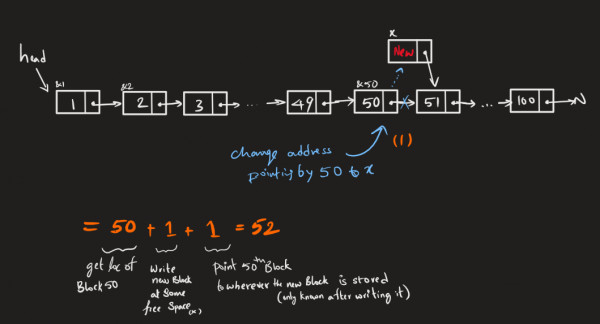 x
New
head
&1 &2 &50
1 2 3 ... 49 50 51 ... 100 N
change address
pointing by 50 to x
(1)
= 50 + 1 + 1 = 52
get loc of
Block 50
Write
new Block
at Some
free Space (x)
point 50th Block
to wherever the new Block is stored
(only known after writing it)